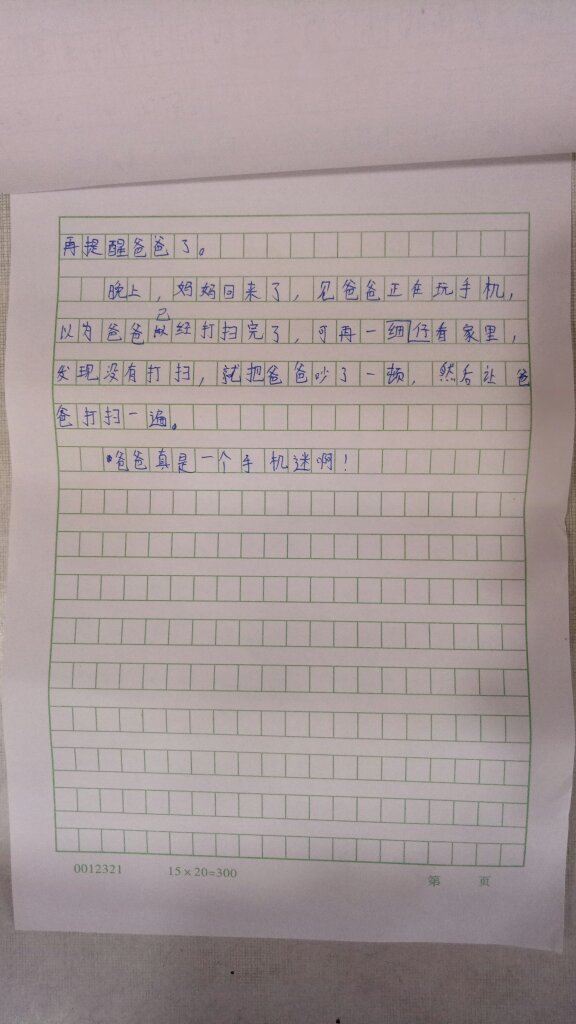 再提醒爸爸了。
晚上，妈妈回来了，见爸爸正在玩手机，
以为爸爸已经打扫完了，可再一细仔看家里，
发现没有打扫，就把爸爸吵了一顿，然后让爸
爸打扫一遍。
爸爸真是一个手机迷啊！
0012321 15×20=300 第 页